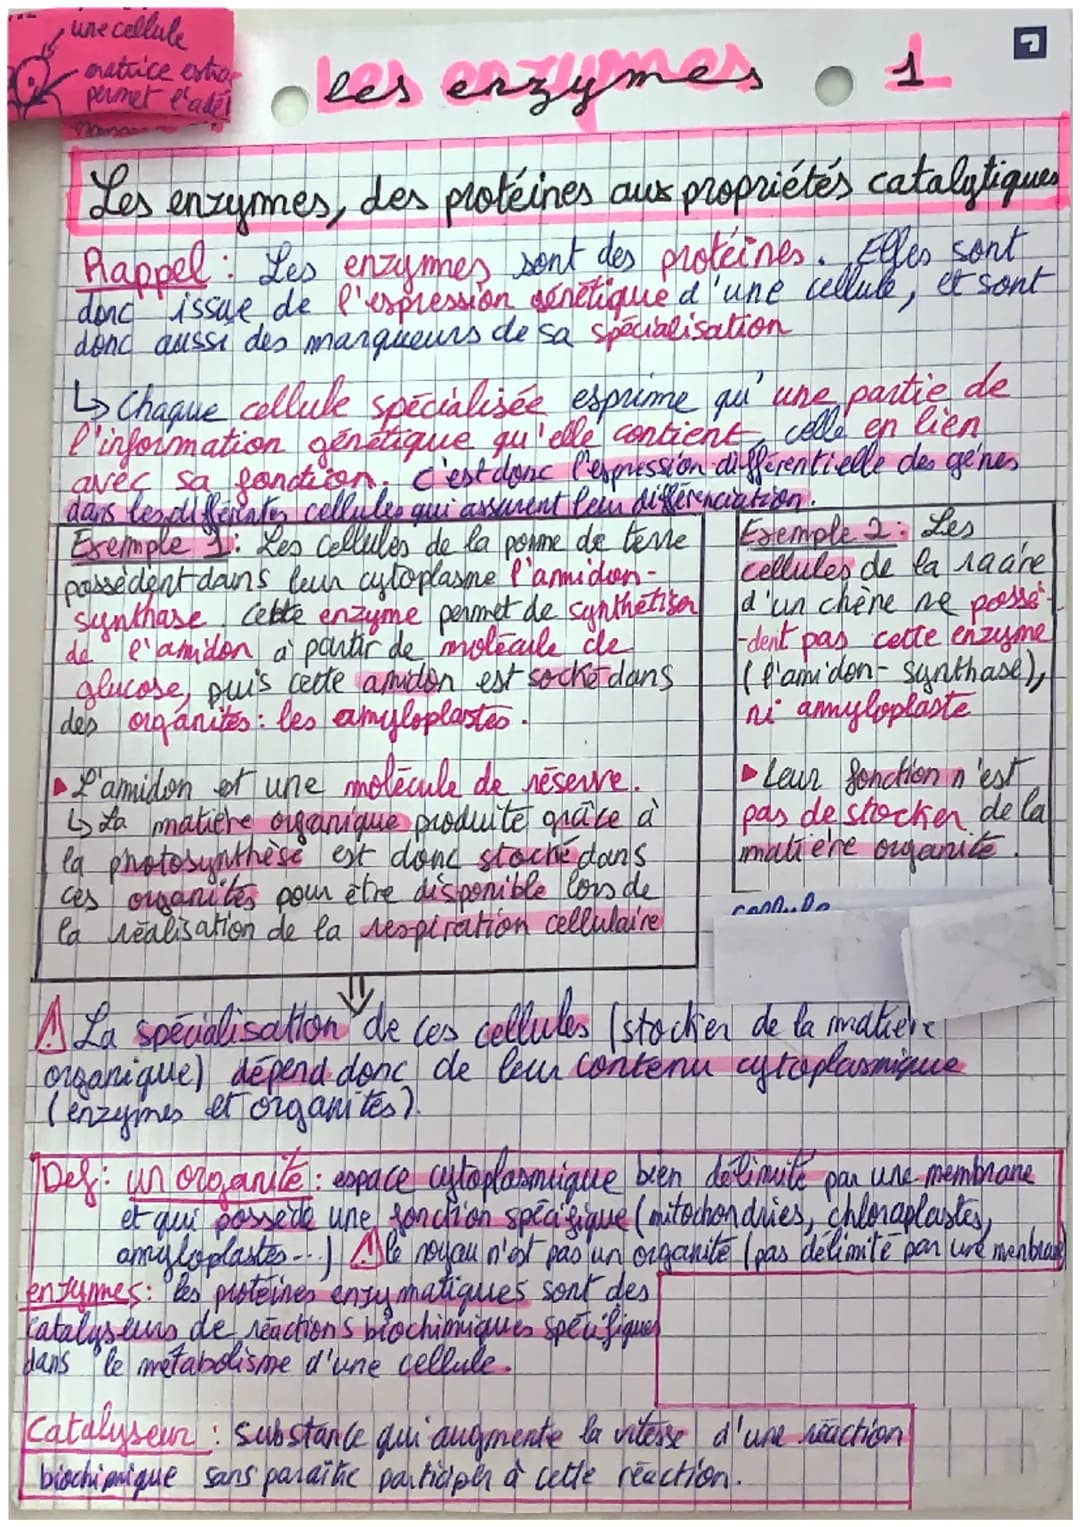 une cellule
matrice extra-
permet l'adé
les enzymes 1
Les enzymes, des protéines aux propriétés catalytiques
Rappel : Les enzymes sont des protéines. Elles sont
donc issue de l'expression génétique d'une cellule, et sont
donc aussi des marqueurs de sa spécialisation
↳ Chaque cellule spécialisée exprime qu'une partie de
l'information génétique qu'elle contient, celle en lien
avec sa fonction. C'est donc l'expression différentielle des gènes
dans les différentes cellules qui assurent leur différenciation.
Exemple 1 : Les cellules de la pomme de terre
possèdent dans leur cytoplasme l'amidon-
synthase. Cette enzyme permet de synthétiser
de l'amidon à partir de molécule de
glucose, puis cette amidon est stocké dans
des organites : les amyloplastes.
▶ L'amidon est une molécule de réserve.
↳ La matière organique produite grâce à
la photosynthèse est donc stocké dans
ces organites pour être disponible lors de
la réalisation de la respiration cellulaire
Exemple 2 : Les
cellules de la racine
d'un chêne ne possè-
-dent pas cette enzyme
(l'amidon-synthase),
ni amyloplaste
▶ Leur fonction n'est
pas de stocker de la
matière organite.
⚠ La spécialisation de ces cellules (stocker de la matière
organique) dépend donc de leur contenu cytoplasmique
(enzymes et organites).
Def : un organite : espace cytoplasmique bien délimité par une membrane
et qui possède une fonction spécifique (mitochondries, chloroplastes,
amyloplastes...) ⚠ le noyau n'est pas un organite (pas délimité par une membrane)
enzymes : les protéines enzymatiques sont des
catalyseurs de réactions biochimiques spécifiques
dans le métabolisme d'une cellule.
Catalyseur : substance qui augmente la vitesse d'une réaction
biochimique sans paraître participer à cette réaction.